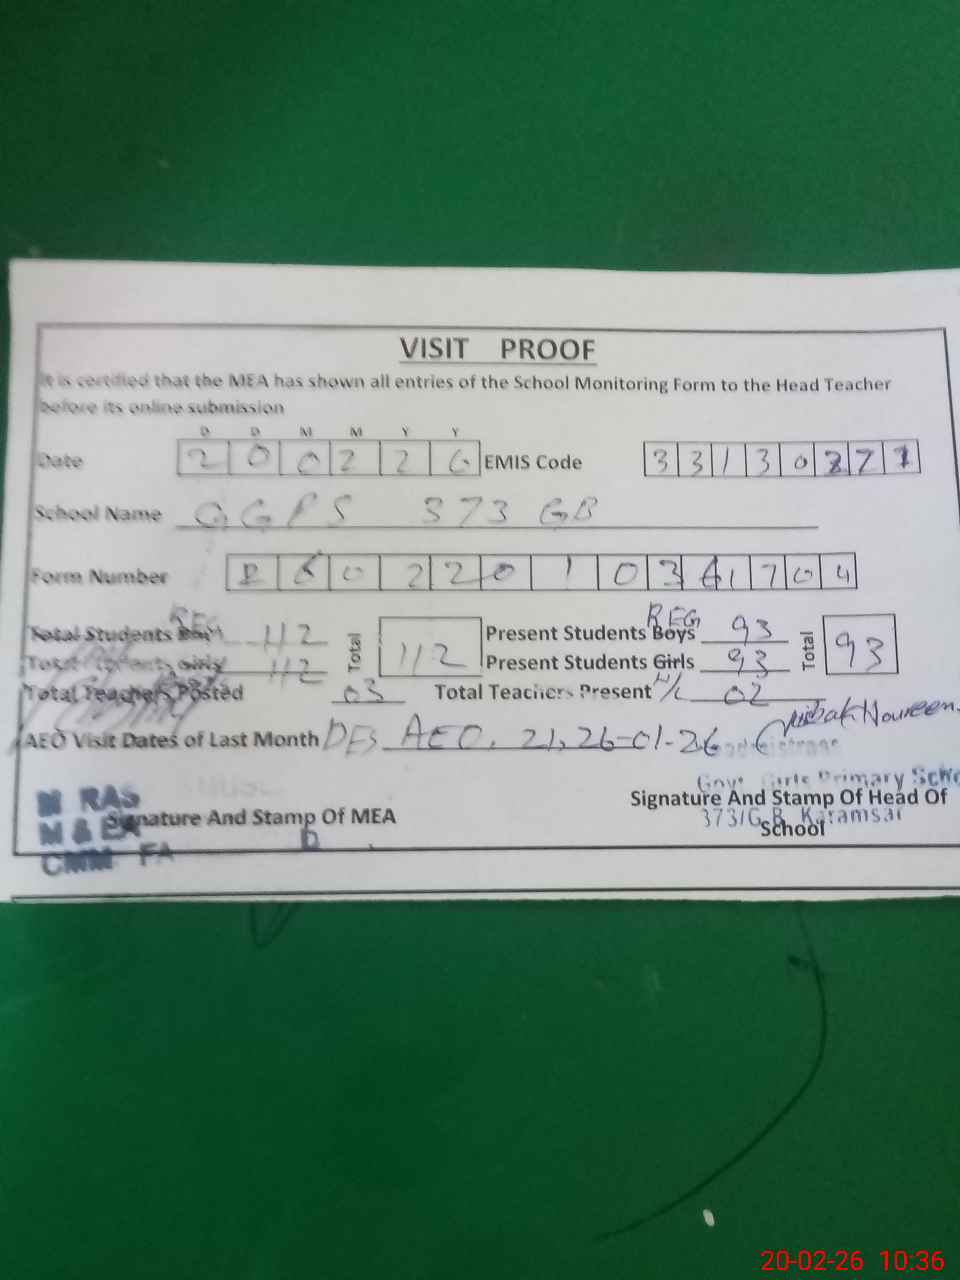 VISIT PROOF
It is certified that the MEA has shown all entries of the School Monitoring Form to the Head Teacher
before its online submission
D D M M Y Y
Date 2 0 0 2 2 6 EMIS Code 3 3 1 3 0 2 7 1
School Name GGPS 373 GB
Form Number 0 2 2 0 1 0 3 1 7 0 4
REG REG
Total Students 112 Total 112 Present Students Boys 93 Total 93
Total Students Girls 112 Present Students Girls 93
Total Teachers Posted 03 Total Teachers Present 02
AEO Visit Dates of Last Month AEO, 21, 26-01-26 Noureen
Headmistress
Govt Girls Primary
M RAS
M & EA Signature And Stamp Of MEA
CMM FA
Signature And Stamp Of Head Of
373/G.B. Karamsar
School
20-02-26 10:36